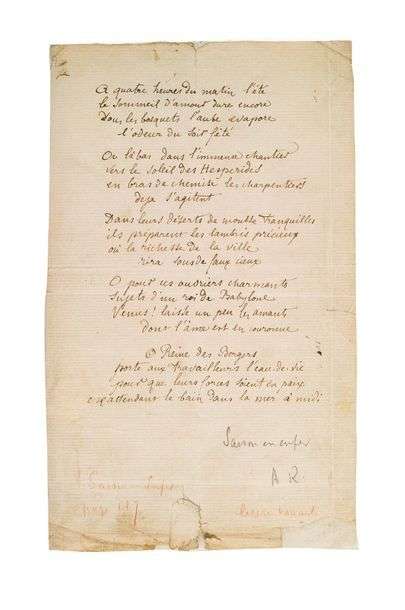 A quatre heures du matin l'été
le Sommeil d'amour dure encore
Sous les bosquets l'aube évapore
l'odeur du soir fêté
Or là bas dans l'immense chantier
vers le soleil des Hesperides
en bras de chemise les charpentiers
deja s'agitent
Dans leurs déserts de mousse tranquilles
ils préparent les lambris précieux
où la richesse de la ville
rira sous de faux cieux
O pour ces ouvriers charmants
Sujets d'un roi de Babylone
Venus! laisse un peu les amants
dont l'âme est en couronne
O Reine des Bergers
porte aux travailleurs l'eau-de-vie
pour que leurs forces soient en paix
en attendant le bain dans la mer à midi
Saison en enfer
A R